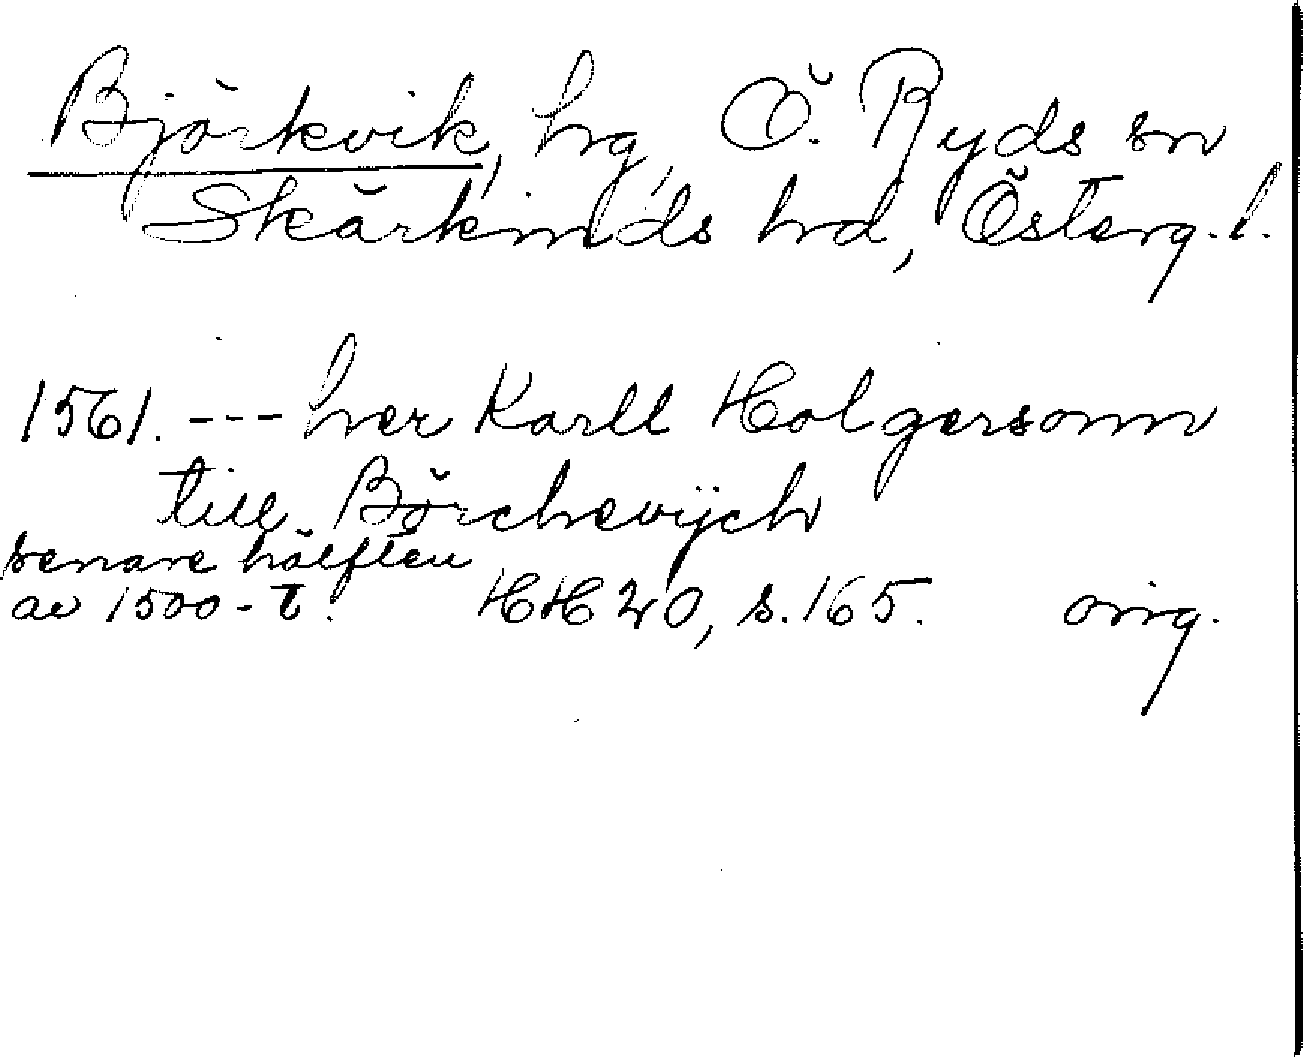 Björkvik, hrg, Ö. Ryds sn
Skärkinds hrd, Österg. l.
1561. --- her Karll Holgersonn
till Börchevijch
senare hälften
av 1500-t. HH 20, s. 165. orig.